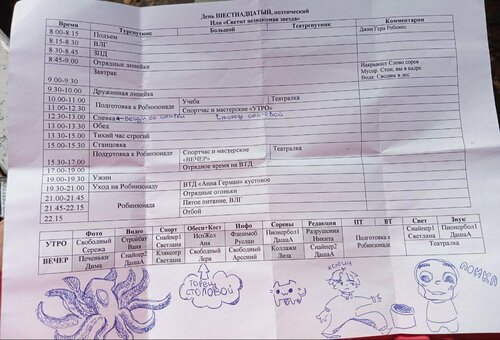 День ШЕСТНАДЦАТЫЙ, поэтический
Или «Светит незнакомая звезда»
Время Турспутник Большой Театрспутник Комментарии
8.00-8.15 Подъем Джин Гера Ребекко
8.15-8.30 ВЛГ
8.30-8.45 ЗПД
8:45-9.00 Отрядные линейки
9.00-9.30 Завтрак
Накрывает Слово сорев
Мусор: Стоп, вы в кадре
Вода: Сводим в лес
9.30-10.00 Дружинная линейка
10.00-11.00 Подготовка к Робинзонаде Учеба Театралка
11.00-12.30 Спортчас и мастерские «УТРО»
12.30-13.00 Спевка столовой
13.00-13.30 Обед
13.30-15.00 Тихий час строгий
15.00-15.30 Становка Театралка
15.30-17.00 Подготовка к Робинзонаде Спортчас и мастерские «ВЕЧЕР»
17.00-19.00 Отрядное время на ВТД
19.00-19.30 Ужин
19.30-21.00 Уход на Робинзонаду ВТД «Анна Герман» кустовое
21.00-21.45 Робинзонада Отрядные огоньки
21.45-22.15 Пятое питание, ВЛГ
22.15 Отбой
Фото Видео Спорт Обесп+Кост Инфо Соревы Редакция ПТ ВТ Свет Звук
УТРО Свободный Сережа Стройбат Ваня Снайпер1 Светлана ИспЖел Аня Фленмоб Руслан Пионербол1 ДашаА Разрушения Никита Подготовка к Робинзонаде Снайпер1 Светлана Пионербол1 ДашаА
ВЕЧЕР Печеньки Дима Снайпер2 ДашаА Кликсор Светлана Свободный Лера Свободный Арсений Коллажи Лиза Снайпер2 ДашаА Театралка
ТОРЕЦ
СТОЛОВОЙ